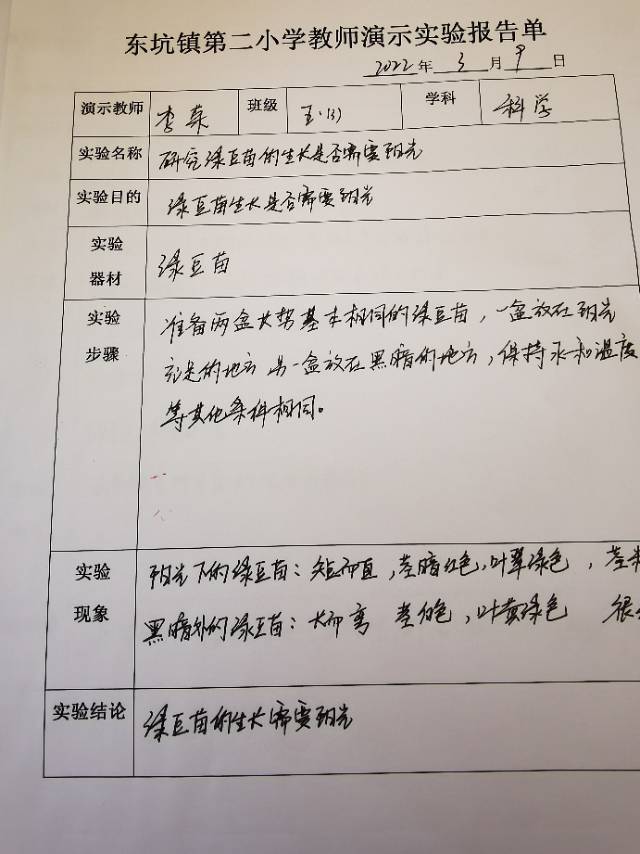 东坑镇第二小学教师演示实验报告单
2022年 3 月 9 日
演示教师 李 班级 五.(3) 学科 科学
实验名称 研究绿豆苗的生长是否需要阳光
实验目的 绿豆苗生长是否需要阳光
实验
器材 绿豆苗
实验
步骤
准备两盆长势基本相同的绿豆苗，一盆放在阳光
充足的地方 另一盆放在黑暗的地方，保持水和温度
等其他条件相同。
实验
现象
阳光下的绿豆苗：短而直，茎暗红色，叶翠绿色，茎
黑暗处的绿豆苗：长而弯 茎白色，叶黄绿色 很
实验结论 绿豆苗的生长需要阳光